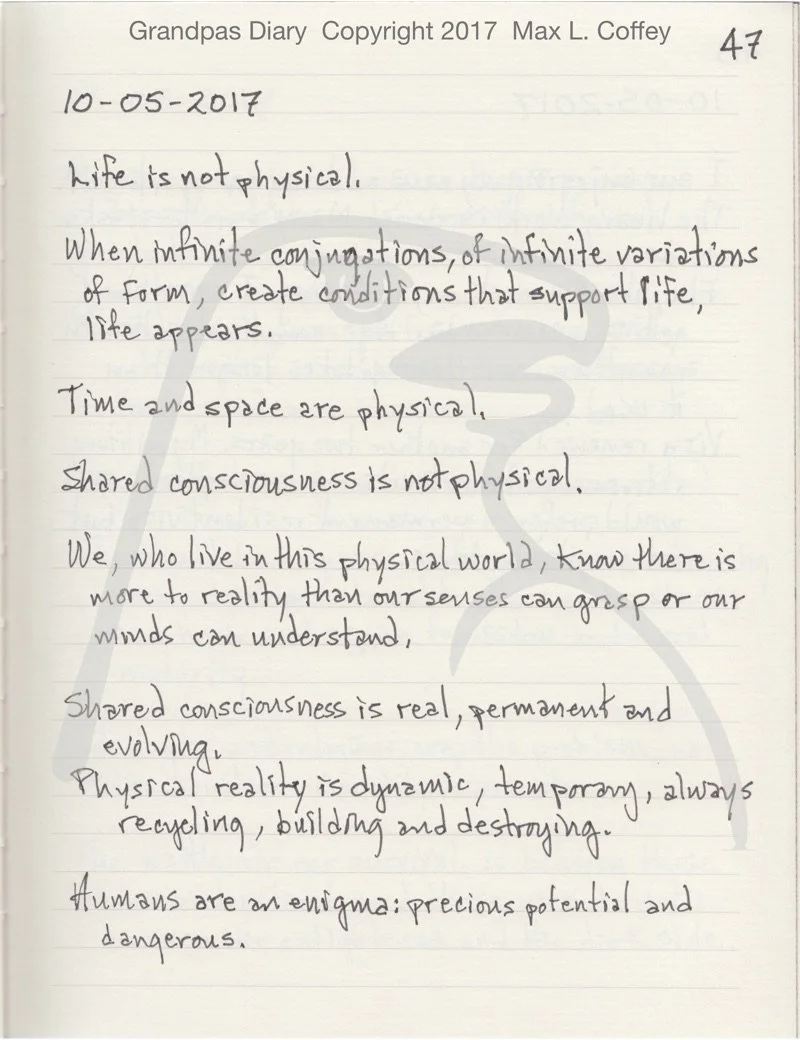 Grandpas Diary Copyright 2017 Max L. Coffey
47
10-05-2017
Life is not physical.
When infinite conjugations, of infinite variations
of form, create conditions that support life,
life appears.
Time and space are physical.
Shared consciousness is not physical.
We, who live in this physical world, know there is
more to reality than our senses can grasp or our
minds can understand.
Shared consciousness is real, permanent and
evolving.
Physical reality is dynamic, temporary, always
recycling, building and destroying.
Humans are an enigma: precious potential and
dangerous.